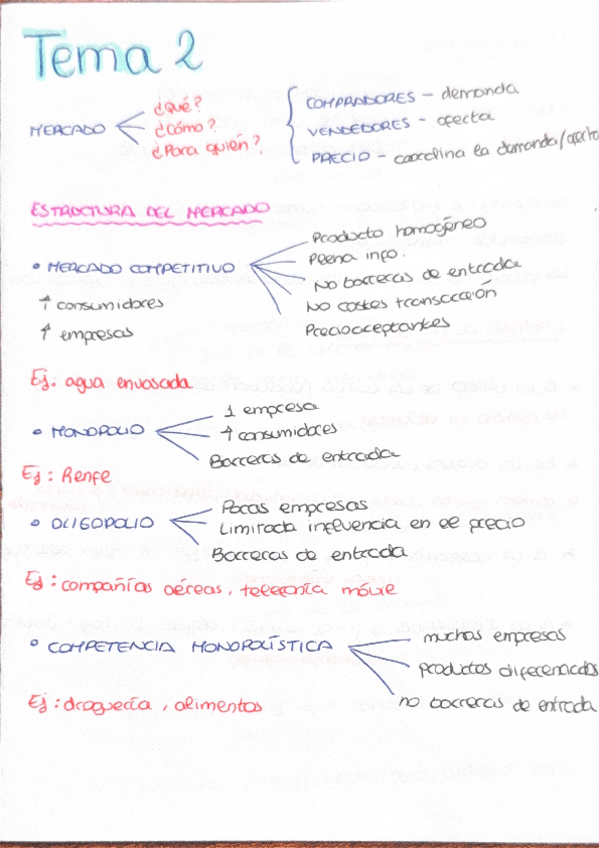 Tema 2
¿Qué?
MERCADO ¿Cómo?
¿Para quién?
COMPRADORES - demanda
VENDEDORES - oferta
PRECIO - coordina la demanda/oferta
ESTRUCTURA DEL MERCADO
• MERCADO COMPETITIVO
↑ consumidores
↑ empresas
Producto homogéneo
Plena info.
No barreras de entrada
No costes transacción
Precioaceptantes
Ej. agua envasada
• MONOPOLIO
1 empresa
↑ consumidores
Barreras de entrada
Ej: Renfe
• OLIGOPOLIO
Pocas empresas
Limitada influencia en el precio
Barreras de entrada
Ej: compañías aéreas, telefonía móvil
• COMPETENCIA MONOPOLÍSTICA
muchas empresas
productos diferenciados
no barreras de entrada
Ej: droguería, alimentos